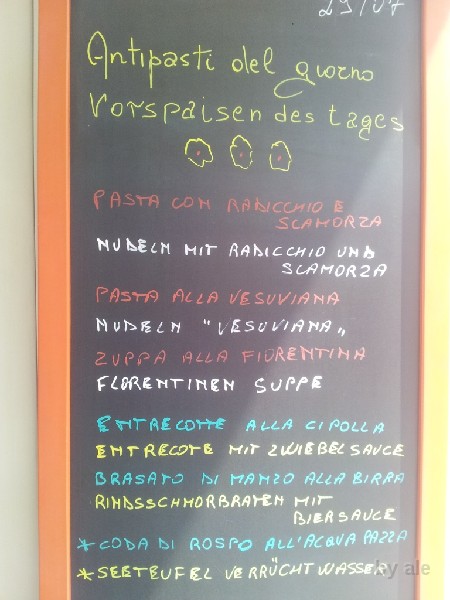 29/07
Antipasti del giorno
Vorspaisen des tages
PASTA CON RADICCHIO E
SCAMORZA
NUDELN MIT RADICCHIO UND
SCAMORZA
PASTA ALLA VESUVIANA
NUDELN "VESUVIANA„
ZUPPA ALLA FIORENTINA
FLORENTINEN SUPPE
ENTRECOTE ALLA CIPOLLA
ENTRECOTE MIT ZWIEBELSAUCE
BRASATO DI MANZO ALLA BIRRA
RINDSSCHMORBRATEN MIT
BIERSAUCE
* CODA DI ROSPO ALL'ACQUA PAZZA
* SEETEUFEL VERRÜCHT WASSER
by ale